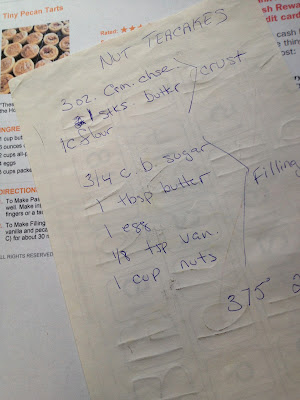 Tiny Pecan Tarts
Rated:
"Thes
the Ho
NUT TEACAKES
3 oz. Crm. chse.
1 stks butter
1 c flour
crust
3/4 c. b. sugar
1 tbsp butter
1 egg
1/8 tsp van.
1 cup nuts
Filling
375°
INGRE
1 cup but
3 ounces
2 cups all-p
eggs
cups packe
DIRECTION
To Make Pas
well. Make in
fingers or a ta
To Make Filling
vanilla and peca
C) for about 30
ALL RIGHTS RESERVED
sh Rewa
dit can
cash
thin
ost: